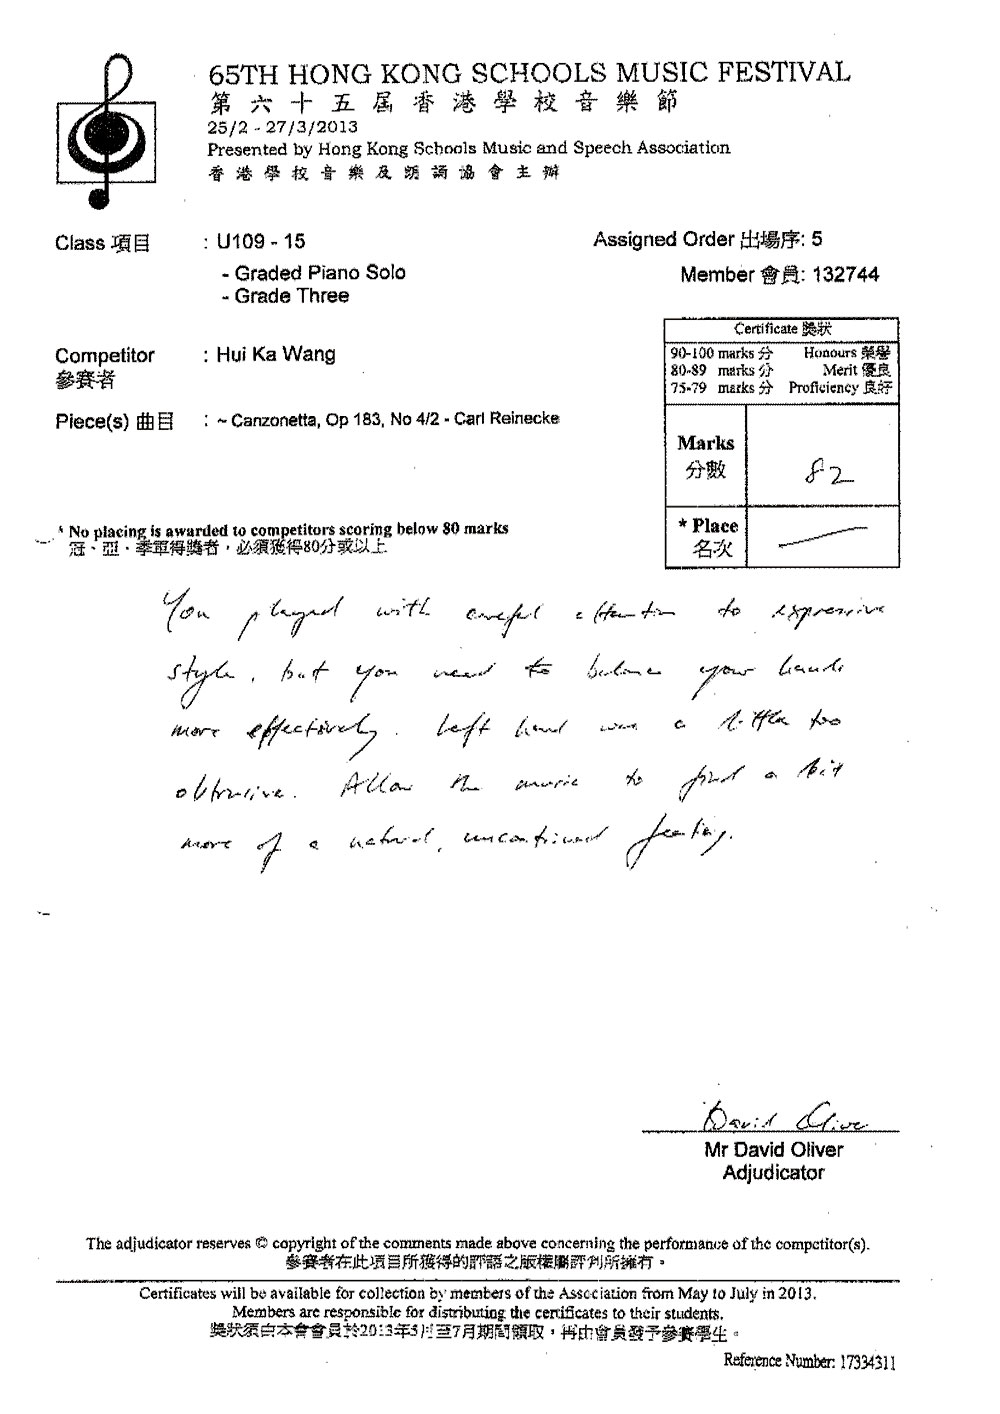 65TH HONG KONG SCHOOLS MUSIC FESTIVAL
第六十五屆香港學校音樂節
25/2 - 27/3/2013
Presented by Hong Kong Schools Music and Speech Association
香港學校音樂及朗誦協會主辦
Class 項目 : U109 - 15
- Graded Piano Solo
- Grade Three
Assigned Order 出場序: 5
Member 會員: 132744
Competitor : Hui Ka Wang
參賽者
Piece(s) 曲目 : ~ Canzonetta, Op 183, No 4/2 - Carl Reinecke
Certificate 獎狀
90-100 marks 分 Honours 榮譽
80-89 marks 分 Merit 優良
75-79 marks 分 Proficiency 良好
Marks 82
分數
* Place —
名次
* No placing is awarded to competitors scoring below 80 marks
冠、亞、季軍得獎者，必須獲得80分或以上
You played with careful attention to expressive
style, but you need to balance your hands
more effectively. Left hand was a little too
obtrusive. Allow the music to find a bit
more of a natural, uncontrived feeling.
David Oliver
Mr David Oliver
Adjudicator
The adjudicator reserves © copyright of the comments made above concerning the performance of the competitor(s).
參賽者在此項目所獲得的評語之版權屬評判所擁有。
Certificates will be available for collection by members of the Association from May to July in 2013.
Members are responsible for distributing the certificates to their students.
獎狀須由本會會員於2013年5月至7月期間領取，再由會員發予參賽學生。
Reference Number: 17334311